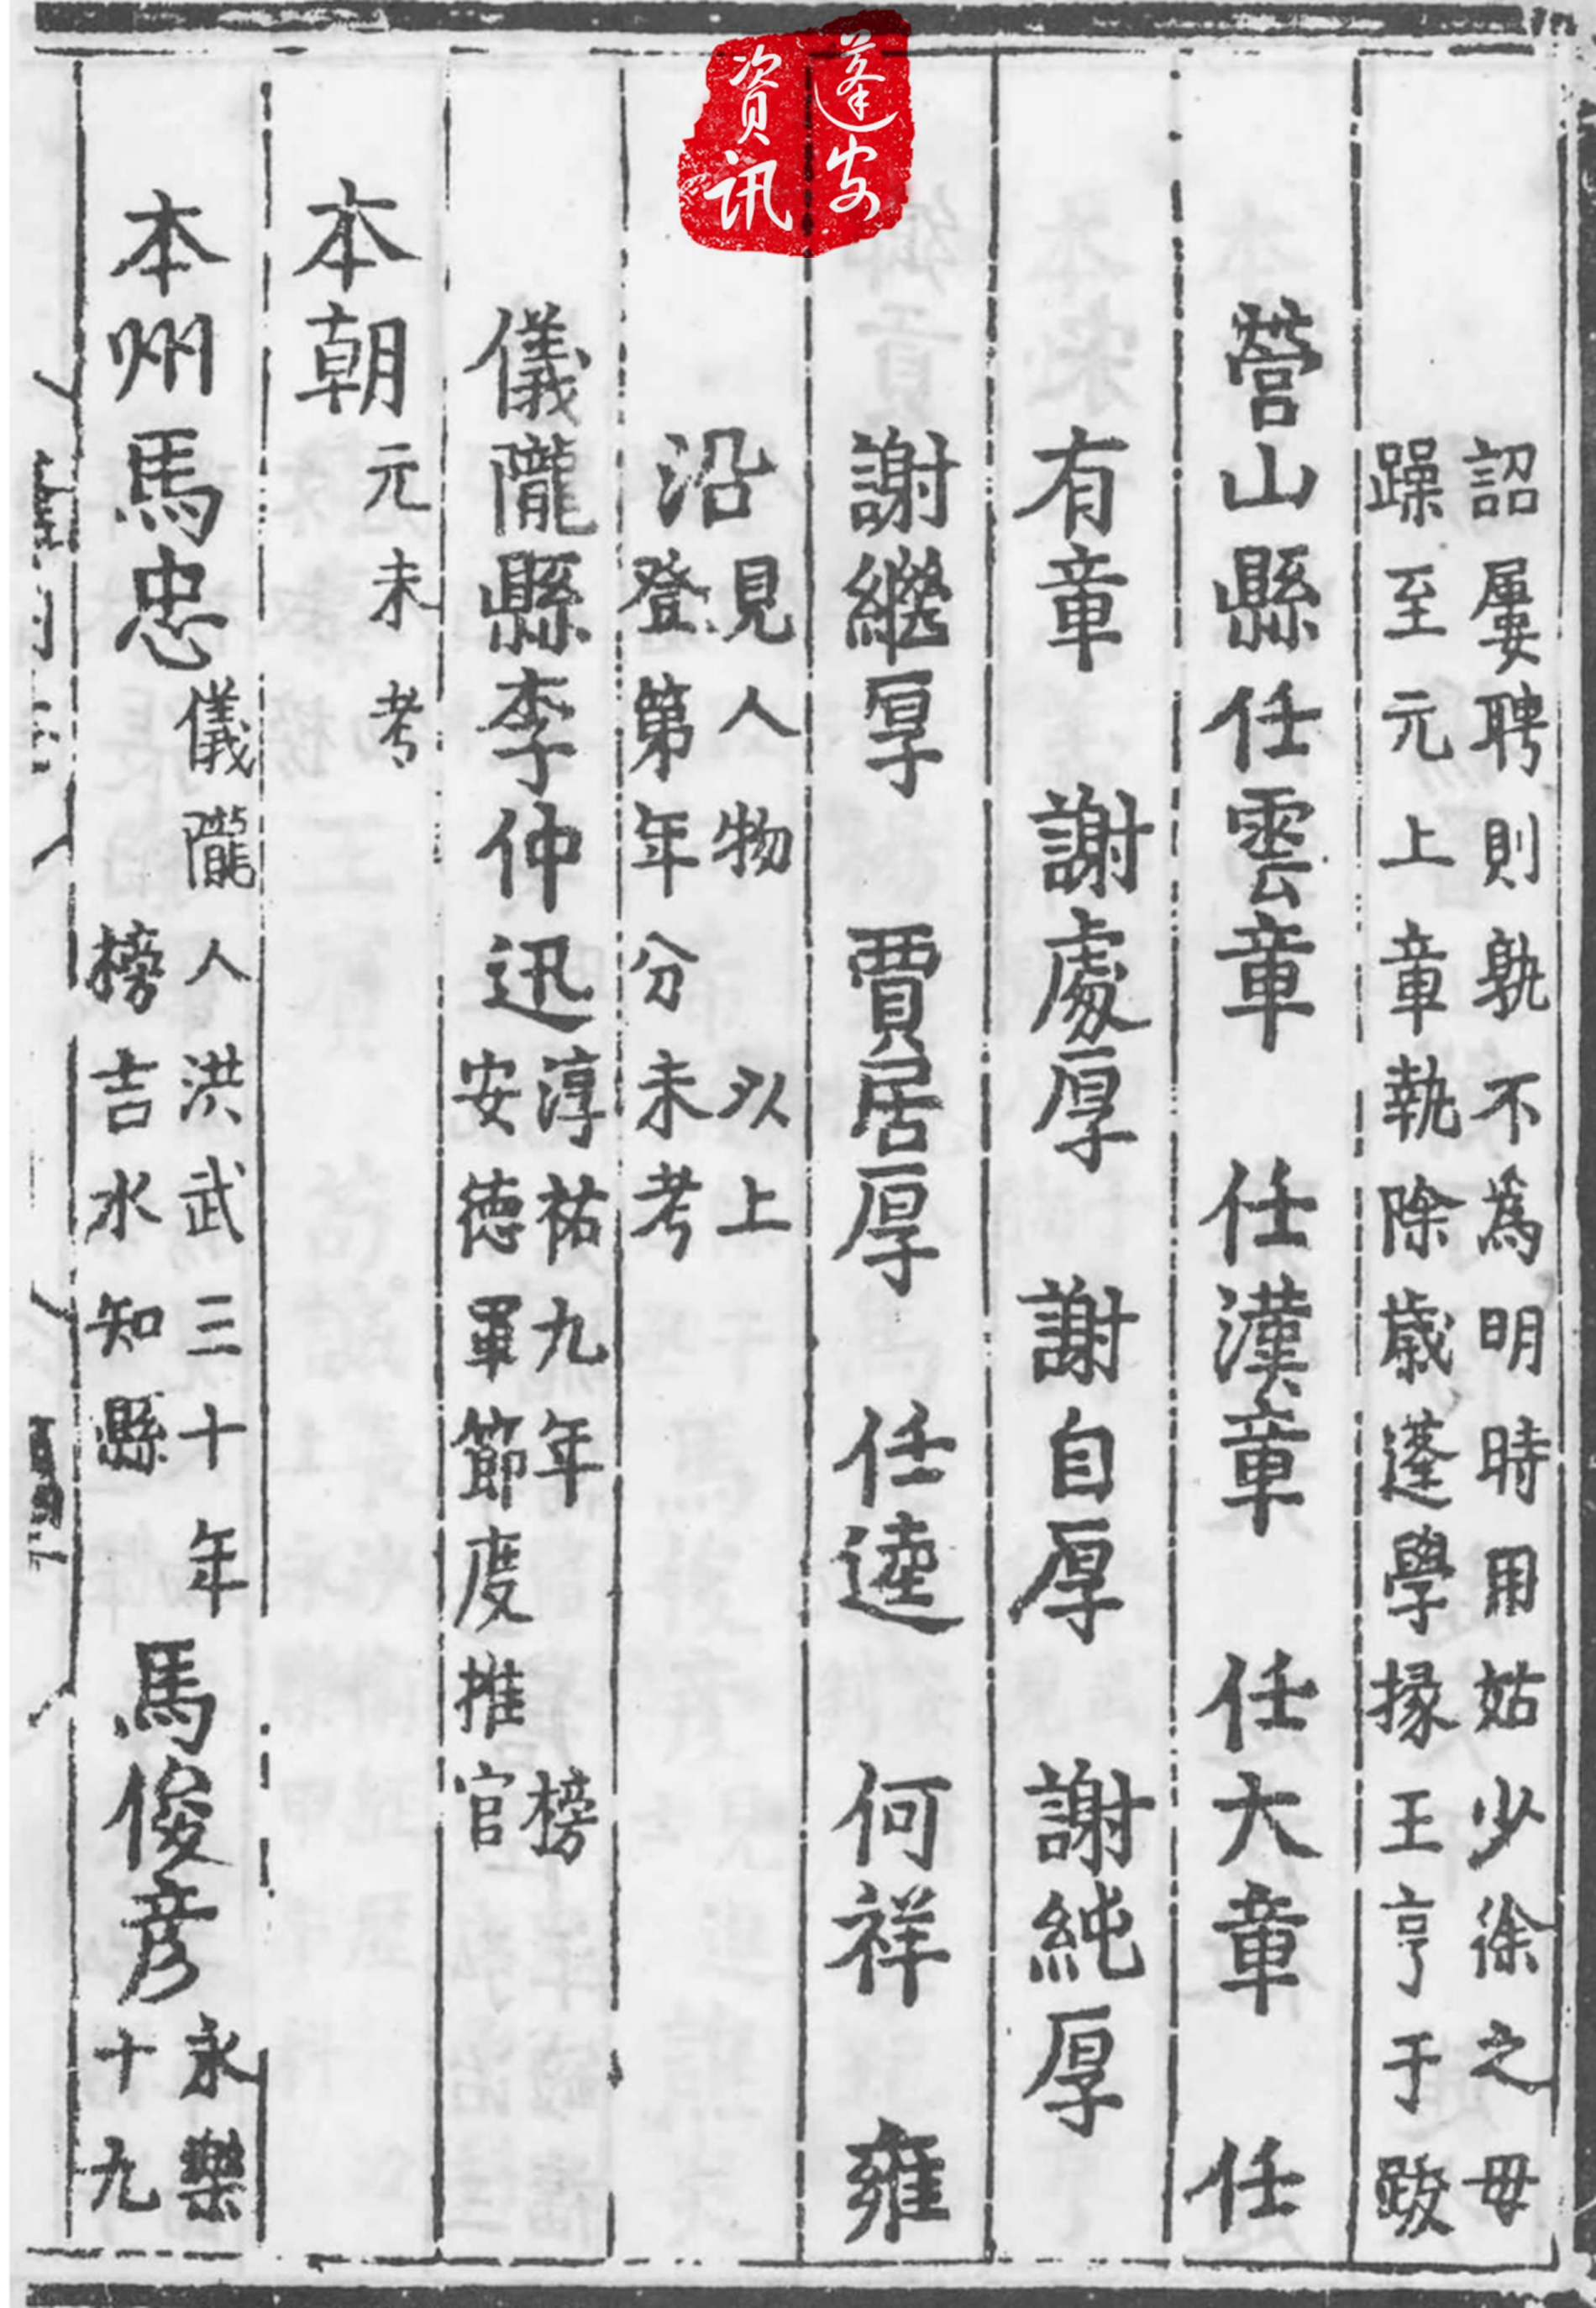 詔屢聘則孰不為明時用姑少徐之毋
躁至元上章執除歲蓬學掾王亨于跋
營山縣任雲章 任漢章 任大章 任
有章 謝處厚 謝自厚 謝純厚
謝繼厚 賈居厚 任逵 何祥 雍
沿見人物 以上
登第年分未考
儀隴縣李仲迅淳祐九年榜
安德軍節度推官
本朝元未考
本州馬忠儀隴人洪武三十年
榜吉水知縣
馬俊彥永樂
十九
蓬安
資訊